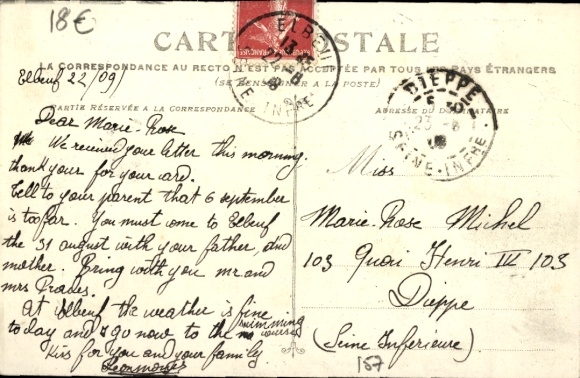 18€
CARTE POSTALE
LA CORRESPONDANCE AU RECTO N'EST PAS ACCEPTÉE PAR TOUS LES PAYS ÉTRANGERS
(SE RENSEIGNER A LA POSTE)
ELBEUF
SEINE INFRE
DIEPPE
SEINE-INFRE
PARTIE RÉSERVÉE A LA CORRESPONDANCE
ADRESSE DU DESTINATAIRE
Elbeuf 22/09
Dear Marie-Rose
We received your letter this morning.
thank your for your card.
Tell to your parent that 6 september
is too far. You must come to Elbeuf
the 31 august with your father, and
mother. Bring with you mr and
mrs
At Elbeuf the weather is fine
to day and I go now to the swimming
courses
Kiss for you and your family
Miss
Marie-Rose Michel
103 Quai Henri IV 103
Dieppe
(Seine Inférieure)
157